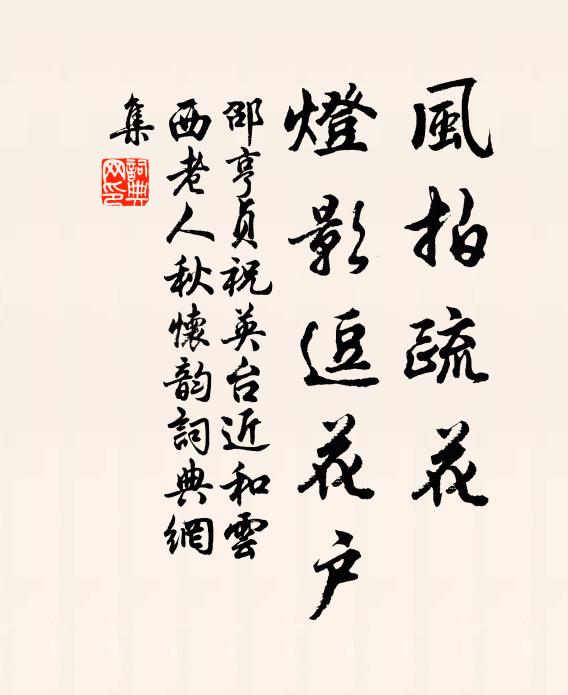 風拍疏花
燈影逗花戶
邵亨貞祝英台近和雲
西老人秋懷韵詞典網
集
詞典網印